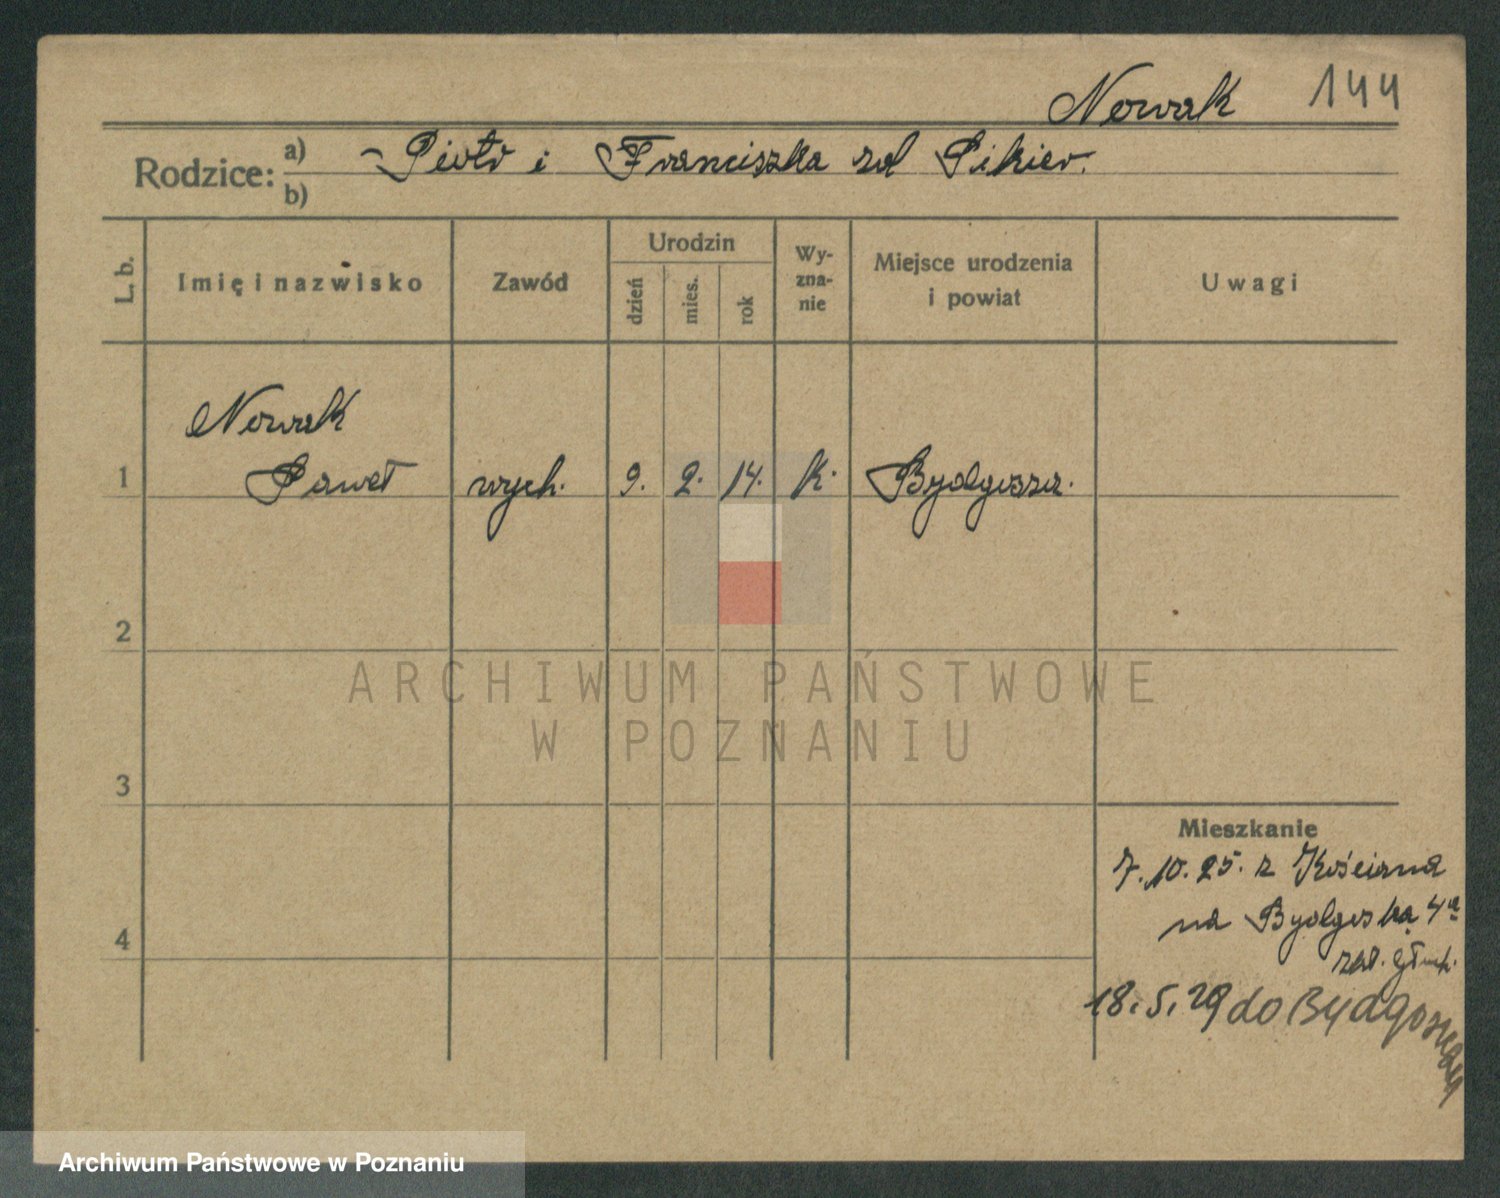 Nowak 144
Rodzice: a) Piotr i Franciszka zd Pikier.
b)
L. b. Imię i nazwisko Zawód Urodzin dzień mies. rok Wyzna-nie Miejsce urodzenia i powiat Uwagi
Nowak
1 Paweł wych. 9. 2. 14. k. Bydgoszcz.
2
ARCHIWUM PAŃSTWOWE
W POZNANIU
3
Mieszkanie
7.10.25. z Kościana
na Bydgoską 4a
4
zał. głuch.
18.5.29 do Bydgoszczy
Archiwum Państwowe w Poznaniu